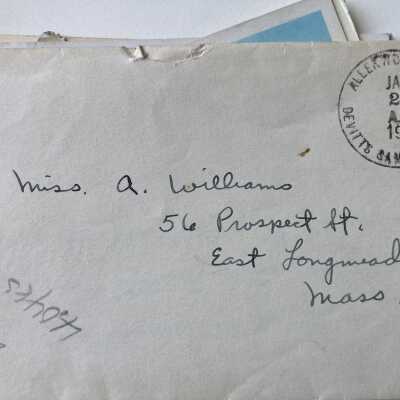 ALLENWO
JA
2
A.
19
DEVITTS SAN
Miss. A. Williams
56 Prospect St.
East Longmead
Mass.